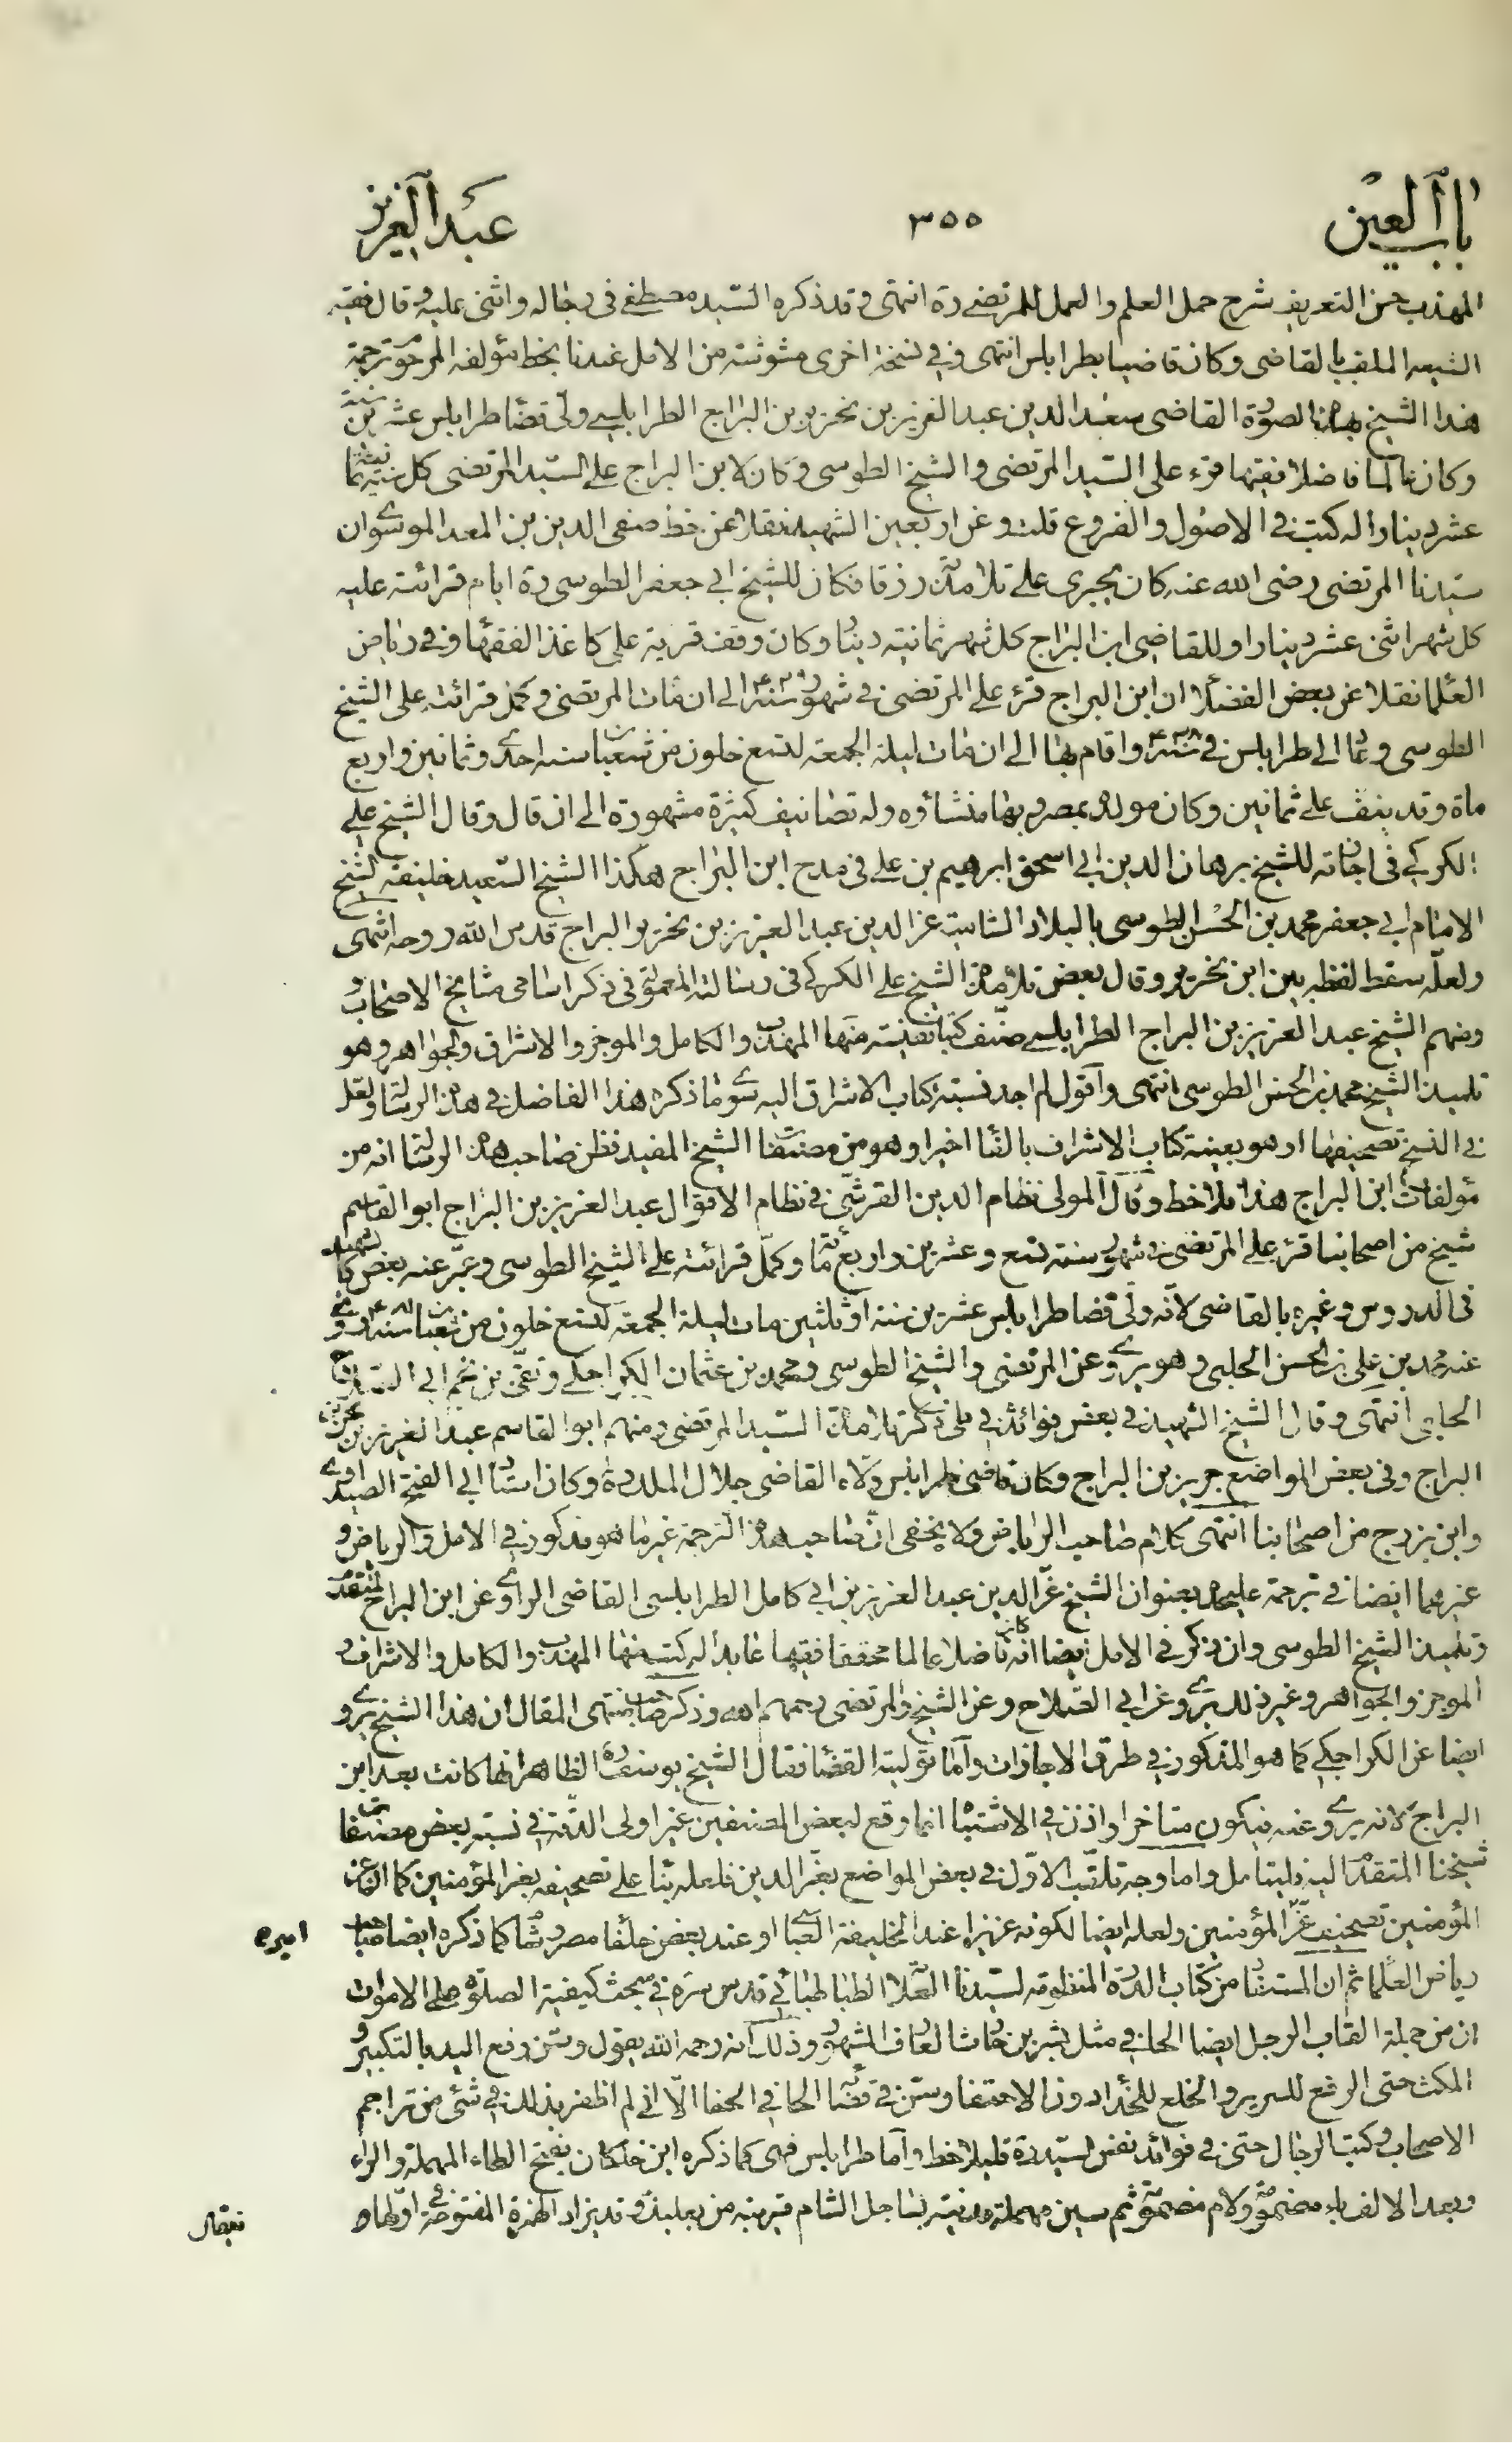 باب العين ٣٥٥ عبد العزيز
المهذب حسن التعريف شرح جمل العلم والعمل للمرتضى ره انتهى وقد ذكره السيد مصطفى في رجاله واثنى عليه وقال فقيه
الشيعه الملقب بالقاضى وكان قاضيا بطرابلس انتهى وفي نسخة اخرى من الامل عندنا بخط مؤلفه المرحوم ترجمة
هذا الشيخ بهذه الصورة القاضى سعد الدين عبد العزيز بن نحرير بن البراج الطرابلسى ولى قضاء طرابلس عشرين سنة
وكان عالما فاضلا فقيها قرء على السيد المرتضى والشيخ الطوسى وكان لابن البراج على السيد المرتضى كل
عشر دينارا له كتب في الاصول والفروع قلت وعن اربعين الشهيد نقلا عن خط صفى الدين بن المعد الموسوى ان
سيدنا المرتضى رضى الله عنه كان يجرى على تلامذته رزقا فكان للشيخ ابى جعفر الطوسى ره ايام قرائته عليه
كل شهر اثنى عشر دينارا وللقاضى ابن البراج كل شهر ثمانية دنانير وكان وقف قرية على كاغذ الفقهاء وفي رياض
العلماء نقلا عن بعض الفضلاء ان ابن البراج قرء على المرتضى في شهور سنة ٤٢٩ الى ان مات المرتضى وكمل قرائته على الشيخ
الطوسى وعاد الى طرابلس في سنة ٤٣٨ واقام بها الى ان مات ليلة الجمعة لتسع خلون من شعبان سنة احدى وثمانين واربع
ماة وقد نيف على ثمانين وكان مولده بمصر وبها منشأوه وله تصانيف كثيرة مشهورة الى ان قال وقال الشيخ على
الكركى في اجازته للشيخ برهان الدين ابى اسحق ابرهيم بن على في مدح ابن البراج هكذا الشيخ السعيد خليفة الشيخ
الامام ابى جعفر محمد بن الحسن الطوسى بالبلاد الشامية عز الدين عبد العزيز بن نحرير البراج قدس الله روحه انتهى
ولعله سقط لفظه بين ابن نحرير وقال بعض تلامذة الشيخ على الكركى في رسالته المعمولة في ذكر اسامى مشايخ الاصحاب
ومنهم الشيخ عبد العزيز بن البراج الطرابلسى صنف كتبا نفيسة منها المهذب والكامل والموجز والاشراق والجواهر وهو
تلميذ الشيخ محمد بن الحسن الطوسى انتهى واقول لم اجد نسبة كتاب الاشراق اليه سوى ما ذكره هذا الفاضل في هذه الرسالة ولعل
في النسخ تصحيفها او هو بعينه كتاب الاشراف بالفاء اخيرا وهو من مصنفات الشيخ المفيد فظن صاحب هذه الرسالة انه من
مؤلفات ابن البراج هذا فلاحظ وقال المولى نظام الدين القرشى في نظام الاقوال عبد العزيز بن البراج ابو القاسم
شيخ من اصحابنا قرء على المرتضى في شهور سنة تسع وعشرين واربعمائة وكمل قرائته على الشيخ الطوسى وعبر عنه بعض كالشهيد
في الدروس وغيره بالقاضى لانه ولى قضا طرابلس عشرين سنة او ثلثين مات ليلة الجمعة لتسع خلون من شعبان سنة ٤٨١ وروى
عنه محمد بن على بن الحسن الحلبى وهو يروى عن المرتضى والشيخ الطوسى ومحمد بن عثمان الكراجكى وتقى بن نجم ابى الصلاح
الحلبى انتهى وقال الشيخ الشهيد في بعض فوائده في ذكر تلامذة السيد المرتضى ومنهم ابو القاسم عبد العزيز بن نحرير بن
البراج وفي بعض المواضع جرير بن البراج وكان قاضى طرابلس ولاه القاضى جلال الملك ره وكان استاد ابى الفتح الصيداوى
وابن بزرج من اصحابنا انتهى كلام صاحب الرياض ولا يخفى ان صاحب هذه الترجمة غير ما هو مذكور في الامل والرياض و
غيرهما ايضا في ترجمة عليحده بعنوان الشيخ عز الدين عبد العزيز بن ابى كامل الطرابلسى القاضى الراوى عن ابن البراج المتقدم
وتلميذ الشيخ الطوسى وان ذكر في الامل ايضا انه كان فاضلا عالما محققا فقيها عابدا له كتب منها المهذب والكامل والاشراف و
الموجز والجواهر وغير ذلك يروى عن ابى الصلاح وعن الشيخ والمرتضى رحمهم الله وذكر صاحب منتهى المقال ان هذا الشيخ يروى
ايضا عن الكراجكى كما هو المذكور في طرق الاجازات واما توليته القضاء فقال الشيخ يوسف ره الظاهر انها كانت بعد ابن
البراج لانه يروى عنه فيكون متاخرا واذن في الاشتباه انما وقع لبعض المصنفين غير اولى الدقة في نسبة بعض مصنفات
شيخنا المتقدم اليه فليتامل واما وجه تلقب الاول في بعض المواضع بعز الدين فلعله بناء على تصحيفه بعز المؤمنين كما ان عز
المؤمنين تصحيف عز المؤمنين ولعله ايضا لكونه عزيزا عند الخليفة العباسى او عند بعض خلفاء مصر كما ذكره ايضا صاحب
اميره
رياض العلماء ثم ان المستفاد من كتاب الدرة المنظومة لسيدنا العلامة الطباطبائى قدس سره في مبحث كيفية الصلوة على الاموات
ان من جملة القاب الرجل ايضا الحافى مثل بشر بن حارث العارف المشهور وذلك انه رحمه الله يقول وسن رفع اليد بالتكبير و
المكث حتى الرفع للسرير والخلع للحذاء دون الاحتفاء وسن في قضاء الحافى الحفا الا انى لم اظفر بذلك في شئ من تراجم
الاصحاب وكتب الرجال حتى في فوائد نفس السيد ره فليلاحظ واما طرابلس فهى كما ذكره ابن خلكان بفتح الطاء المهملة والراء
وبعد الالف باء مضمومة ولام مضمومة ثم سين مهملة مدينة بساحل الشام قريبة من بعلبك وقد يزاد الهمزة المفتوحة في اولها و
فيقال